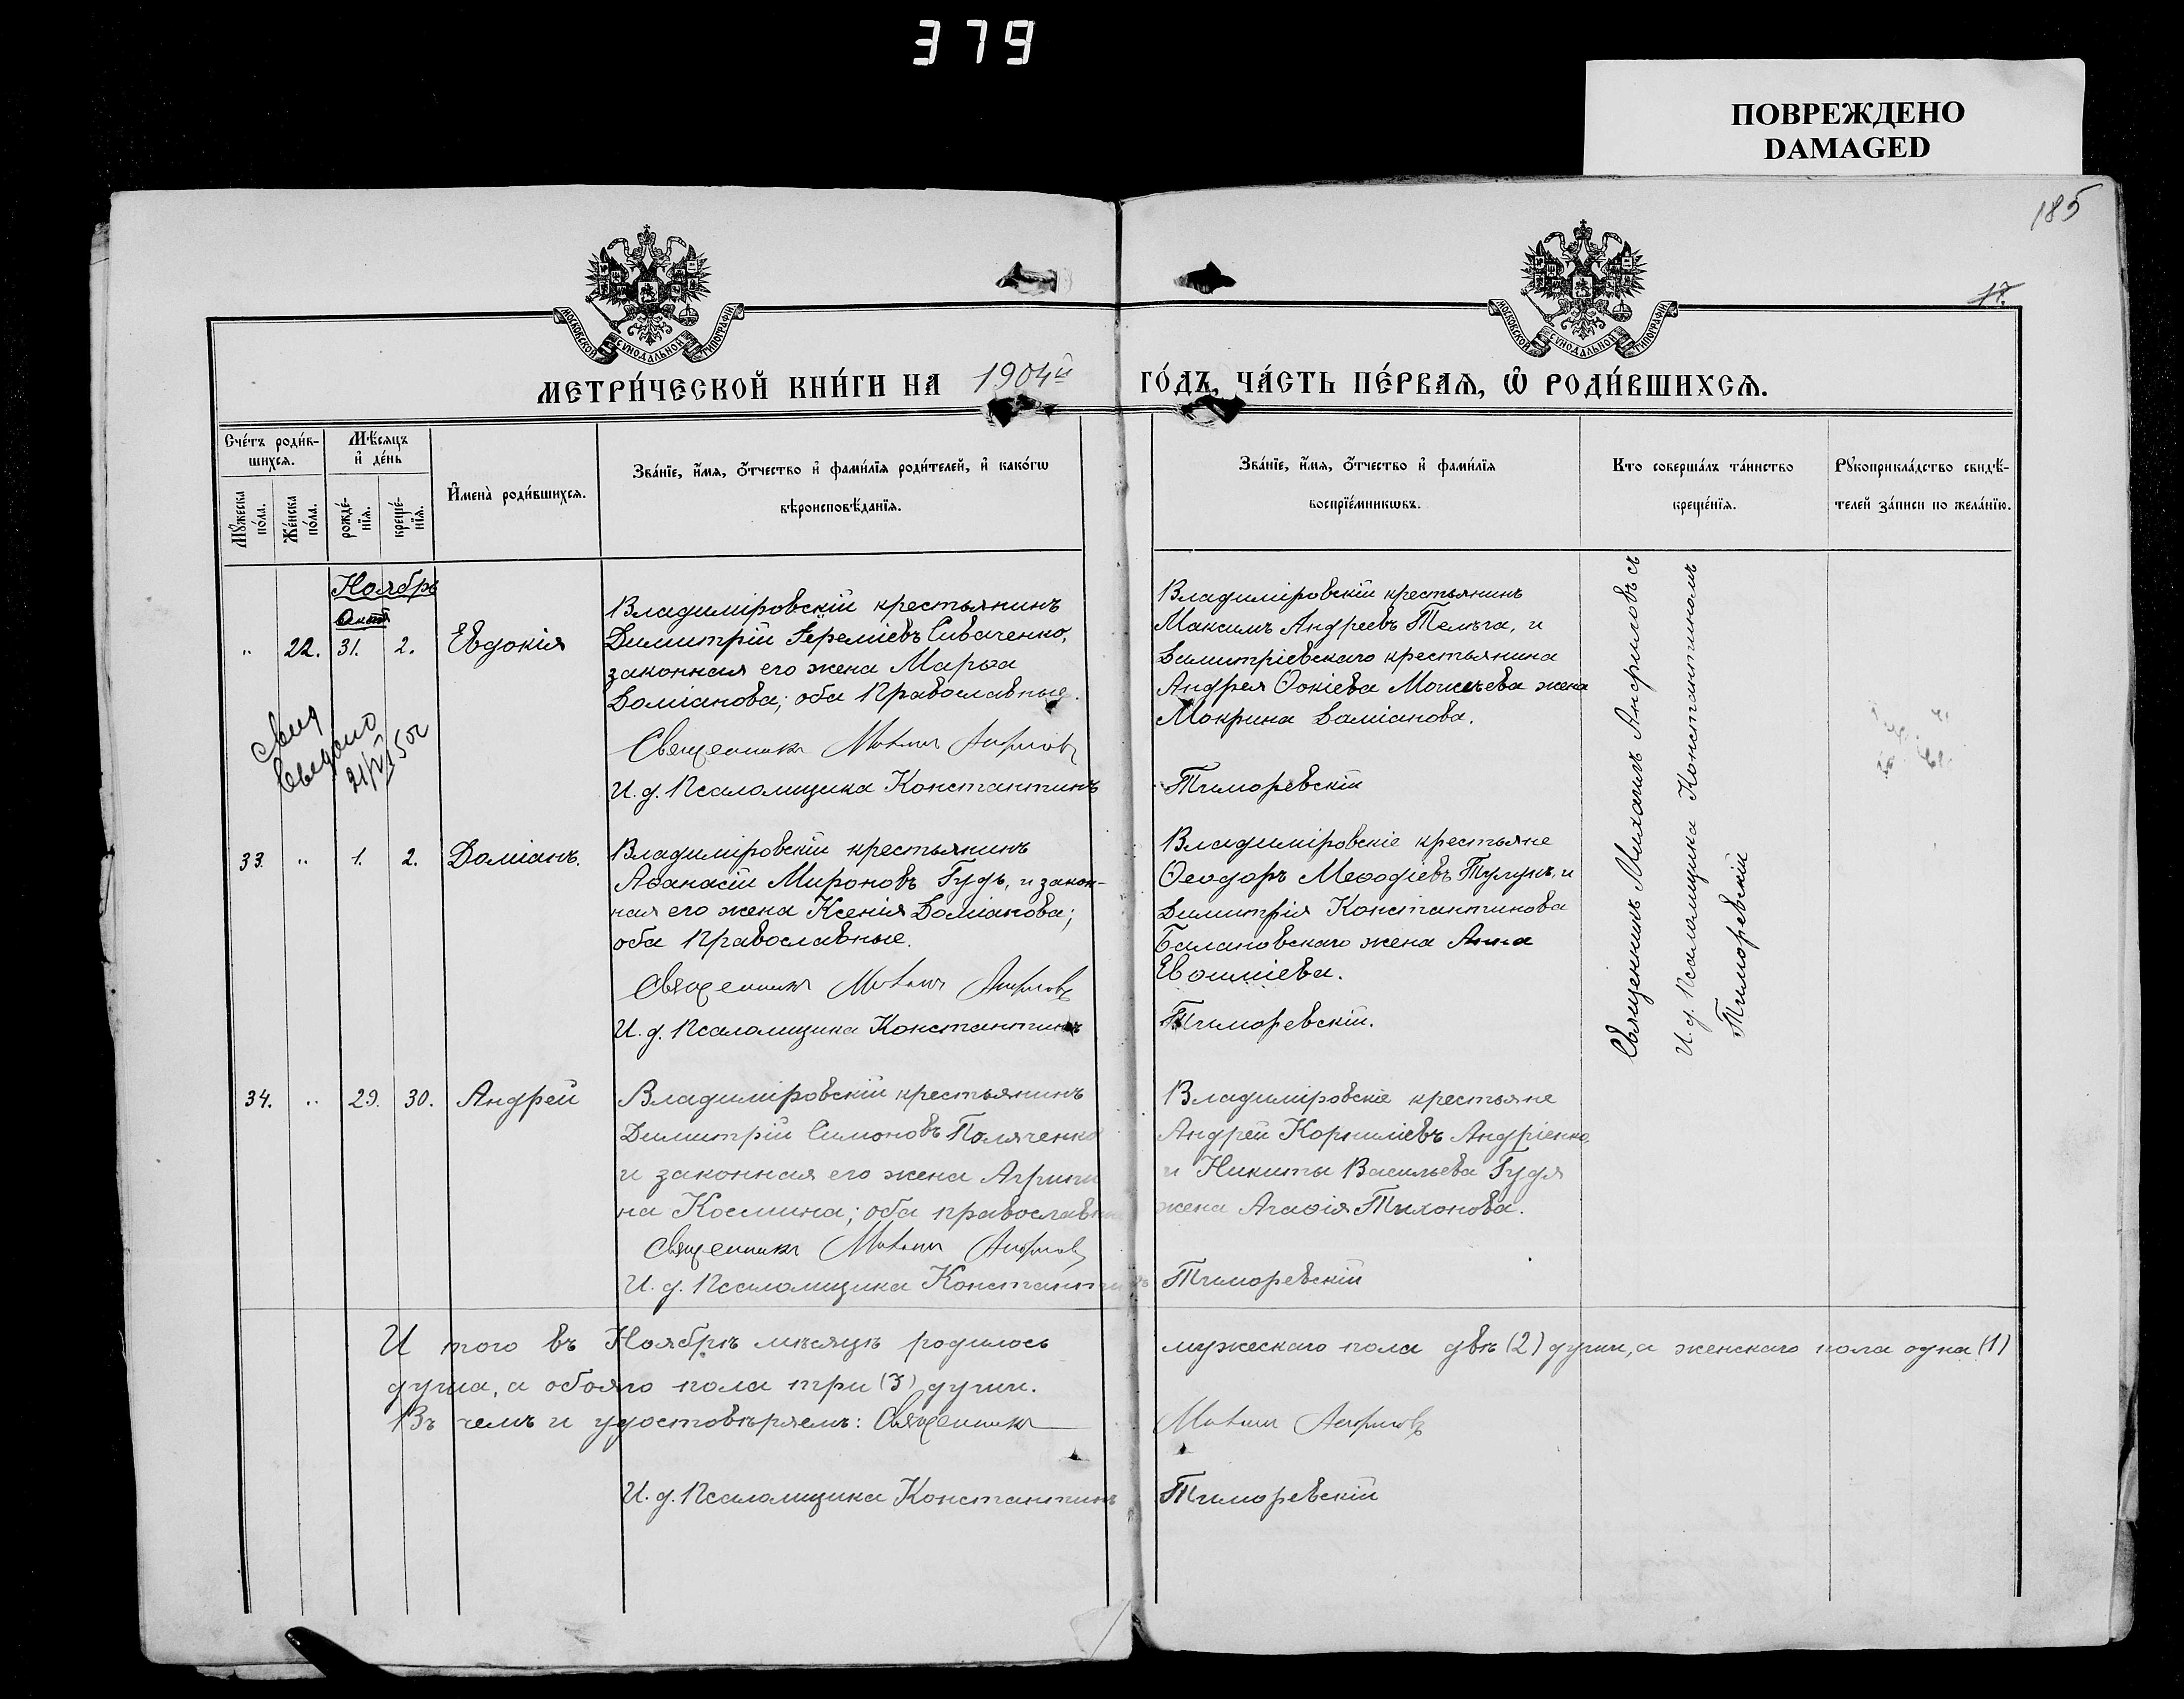 379
ПОВРЕЖДЕНО
DAMAGED
185
17.
МОСКОВСКОЙ СѴНОДАЛЬНОЙ ТИПОГРАФІИ
МОСКОВСКОЙ СѴНОДАЛЬНОЙ ТИПОГРАФІИ
МЕТРИ́ЧЕСКОЙ КНИ́ГИ НА 1904й ГО́ДЪ, ЧА́СТЬ ПЕ́РВАѦ, Ѡ҆ РОДИ́ВШИХСѦ.
Сче́тъ роди́в-
шихсѧ.
Мѣ́сѧцъ
и҆ де́нь
Мꙋ́жеска
по́ла.
Же́нска
по́ла.
рожде́-
нїѧ.
креще́-
нїѧ.
И҆мена̀ роди́вшихсѧ.
Зва́нїе, и҆́мѧ, ѻ҆́тчество и҆ фами́лїѧ роди́телей, и҆ како́гѡ
вѣроисповѣ́данїѧ.
Зва́нїе, и҆́мѧ, ѻ҆́тчество и҆ фами́лїѧ
воспрїе́мникѡвъ.
Кто соверша́лъ та́инство
креще́нїѧ.
Рꙋкоприкла́дство свидѣ́-
телей за́писи по жела́нїю.
Ноябрь
Окт
" 22. 31. 2. Евдокія
Владиміровскій крестьянинъ
Димитрій Іереміевъ Сиваченко,
законная его жена Марѳа
Даміанова; оба Православные.
Священникъ Михаилъ Анфиловъ
И. д. Псаломщика Константинъ
Владиміровскій крестьянинъ
Максимъ Андреевъ Телѣга, и
Димитріевскаго крестьянина
Андрея Ѳокіева Можаева жена
Мокрина Даміанова.
Тиморевскій
Свид
выдано
33. " 1. 2. Даміанъ.
Владиміровскій крестьянинъ
Аѳанасій Мироновъ Гудь, и закон-
ная его жена Ксенія Даміанова;
оба Православные.
Священникъ Михаилъ Анфиловъ
И. д. Псаломщика Константинъ
Владиміровскіе крестьяне
Ѳеодоръ Меѳодіевъ Тулупъ, и
Димитрія Константинова
Балановскаго жена Анна
Евѳиміева.
Тиморевскій.
34. " 29. 30. Андрей
Владиміровскій крестьянинъ
Димитрій Симоновъ Поляченко
и законная его жена Агрипи
на Космина; оба православные
Священникъ Михаилъ Анфиловъ
И. д. Псаломщика Константинъ
Владиміровскіе крестьяне
Андрей Корниліевъ Андріенко,
и Никиты Васильева Гудя
жена Агаѳія Тихонова.
Тиморевскій
Священникъ Михаилъ Анфиловъ съ
И. д. Псаломщика Константиномъ
Тиморевскій
И того въ Ноябрѣ мѣсяцѣ родилось мужескаго пола двѣ (2) души, а женскаго пола одна (1)
душа, а обоего пола три (3) души.
Въ чемъ и удостовѣряемъ: Священникъ Михаилъ Анфиловъ
И. д. Псаломщика Константинъ Тиморевскій